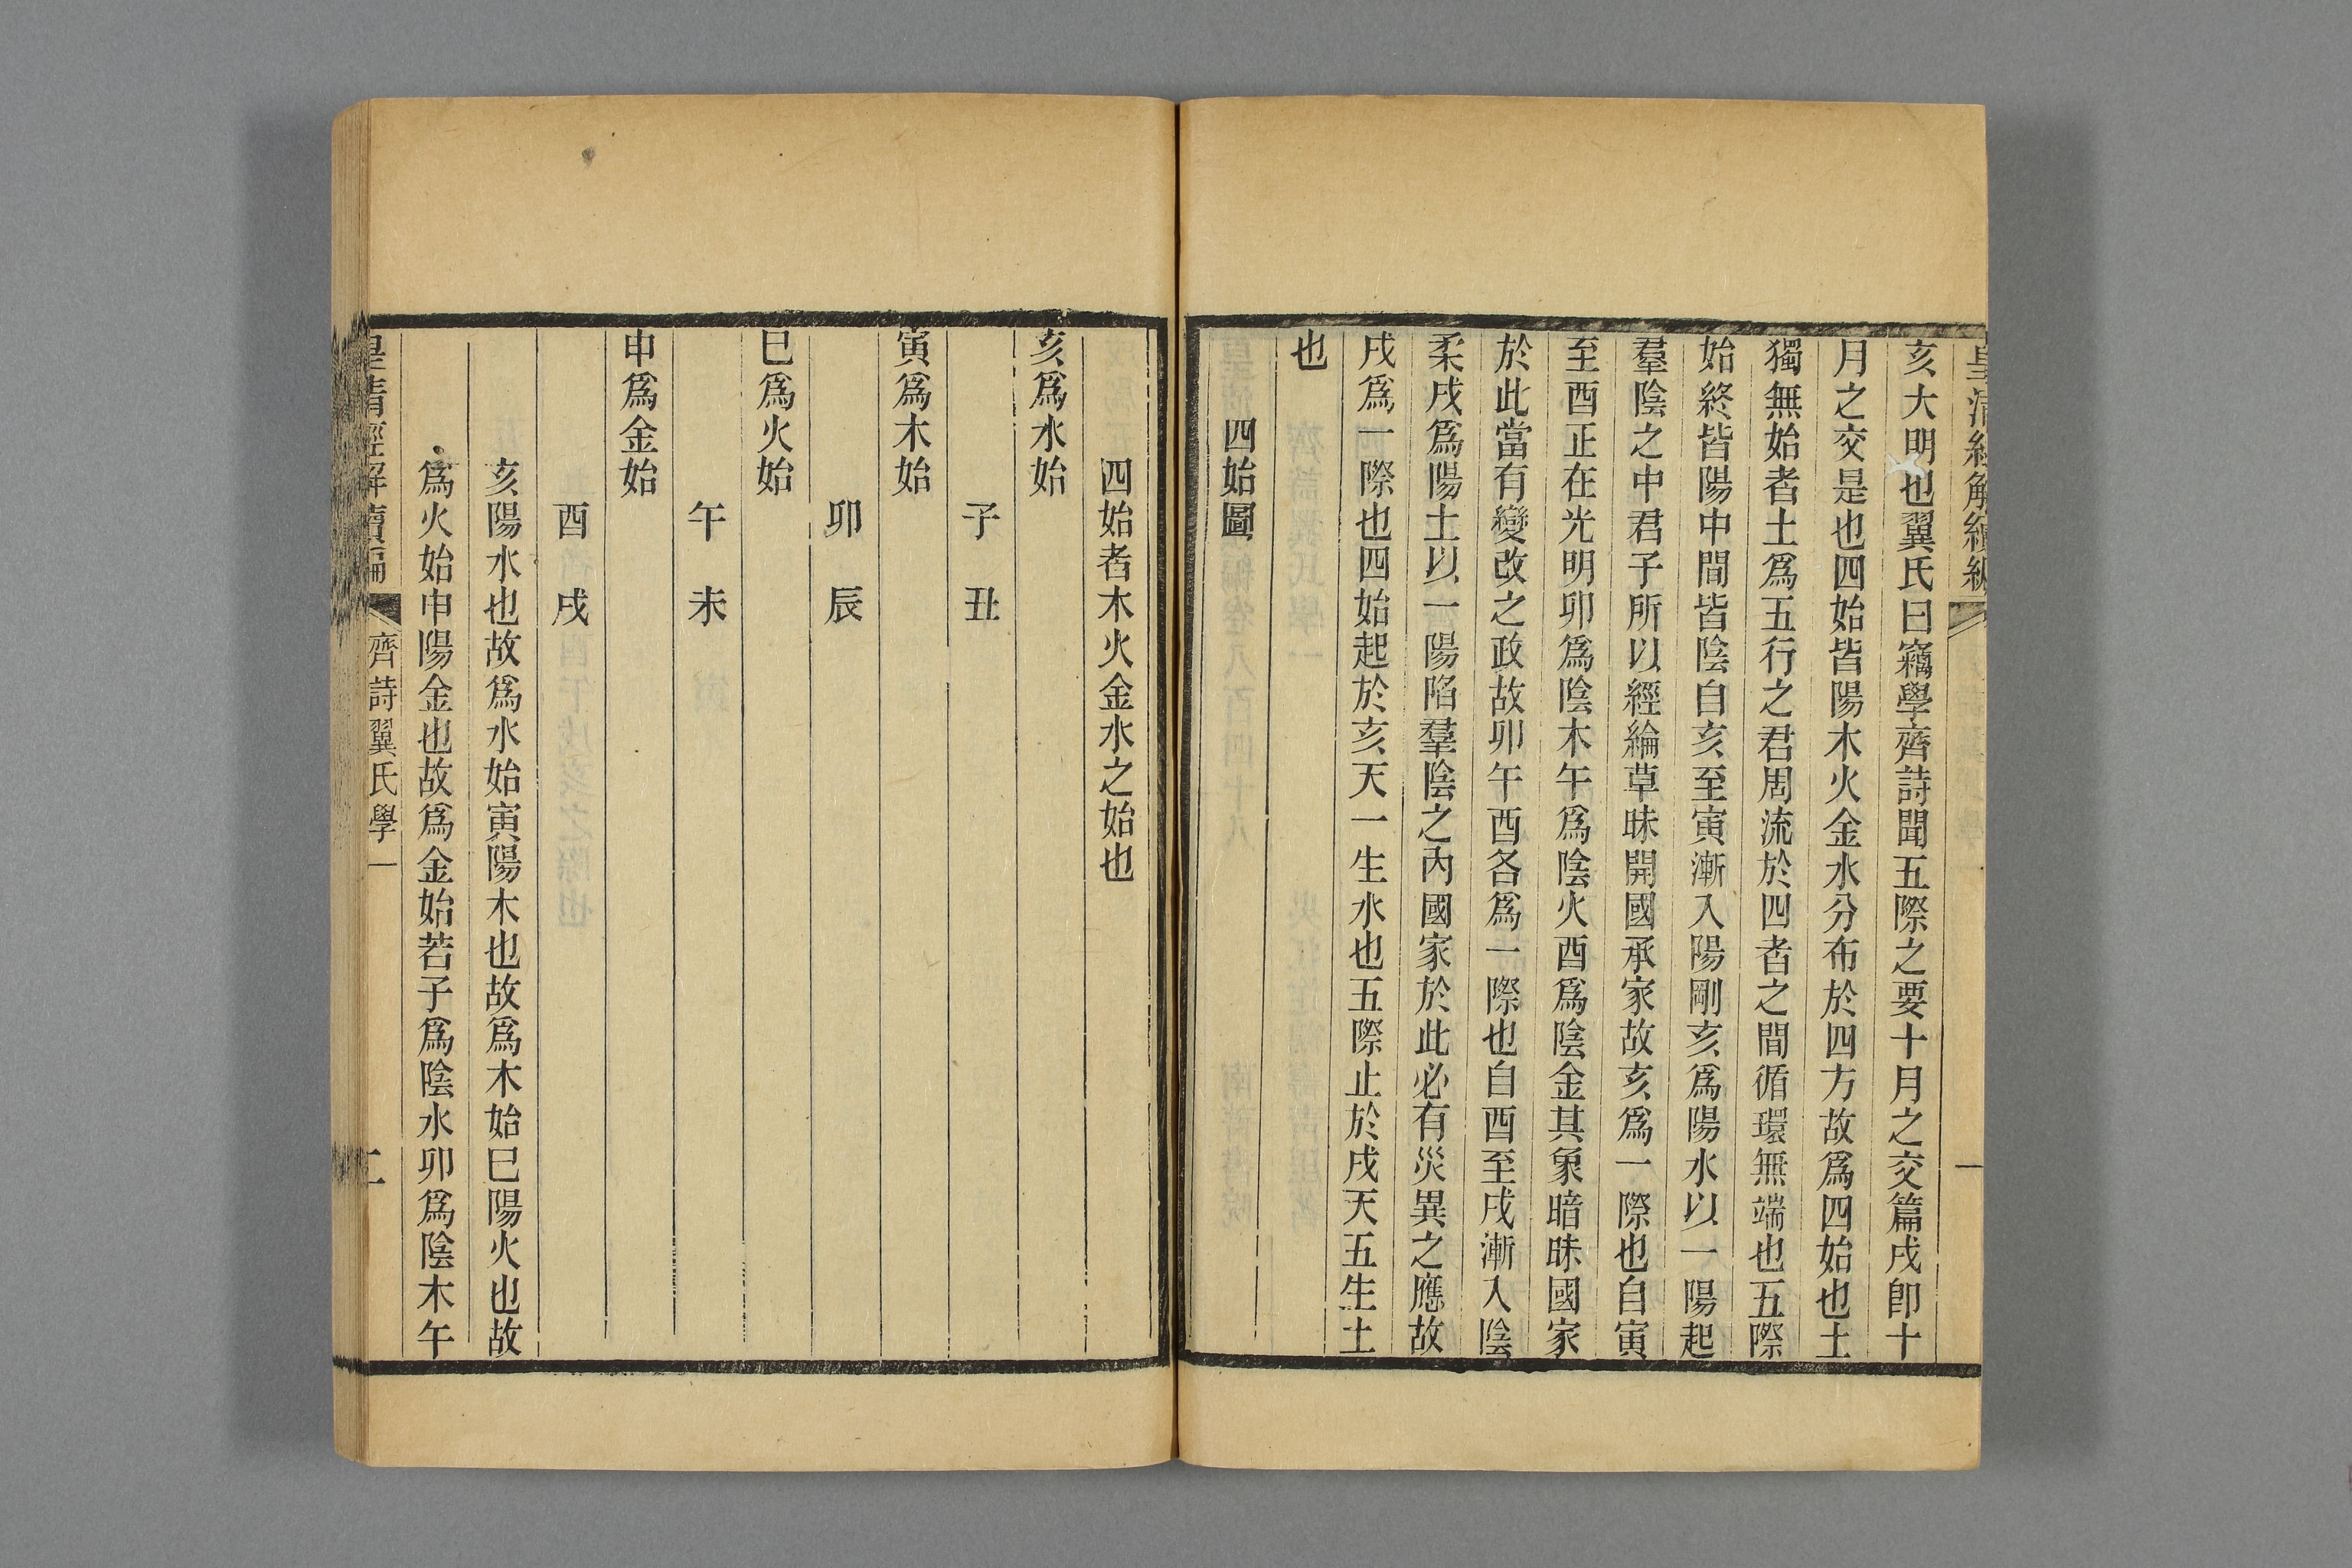 皇清經解續編
一
亥大明也翼氏曰竊學齊詩聞五際之要十月之交篇戌卽十
月之交是也四始皆陽木火金水分布於四方故爲四始也土
獨無始者土爲五行之君周流於四者之間循環無端也五際
始終皆陽中間皆陰自亥至寅漸入陽剛亥爲陽水以一陽起
羣陰之中君子所以經綸草昧開國承家故亥爲一際也自寅
至酉正在光明卯爲陰木午爲陰火酉爲陰金其象暗昧國家
於此當有變改之政故卯午酉各爲一際也自酉至戌漸入陰
柔戌爲陽土以一陽陷羣陰之內國家於此必有災異之應故
戌爲一際也四始起於亥天一生水也五際止於戌天五生土
也
四始圖
四始者木火金水之始也
亥爲水始
子丑
寅爲木始
卯辰
巳爲火始
午未
申爲金始
酉戌
亥陽水也故爲水始寅陽木也故爲木始巳陽火也故
爲火始申陽金也故爲金始若子爲陰水卯爲陰木午
皇清經解續編
齊詩翼氏學一
二